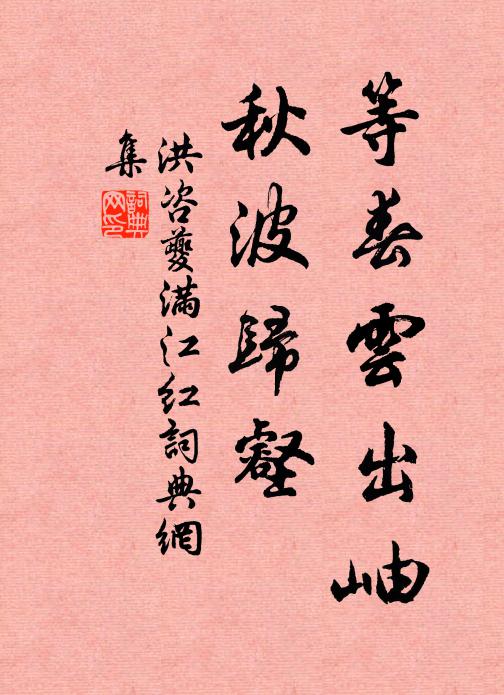 等春雲出岫
秋波歸壑
洪咨夔滿江红詞典網
集
詞典网印